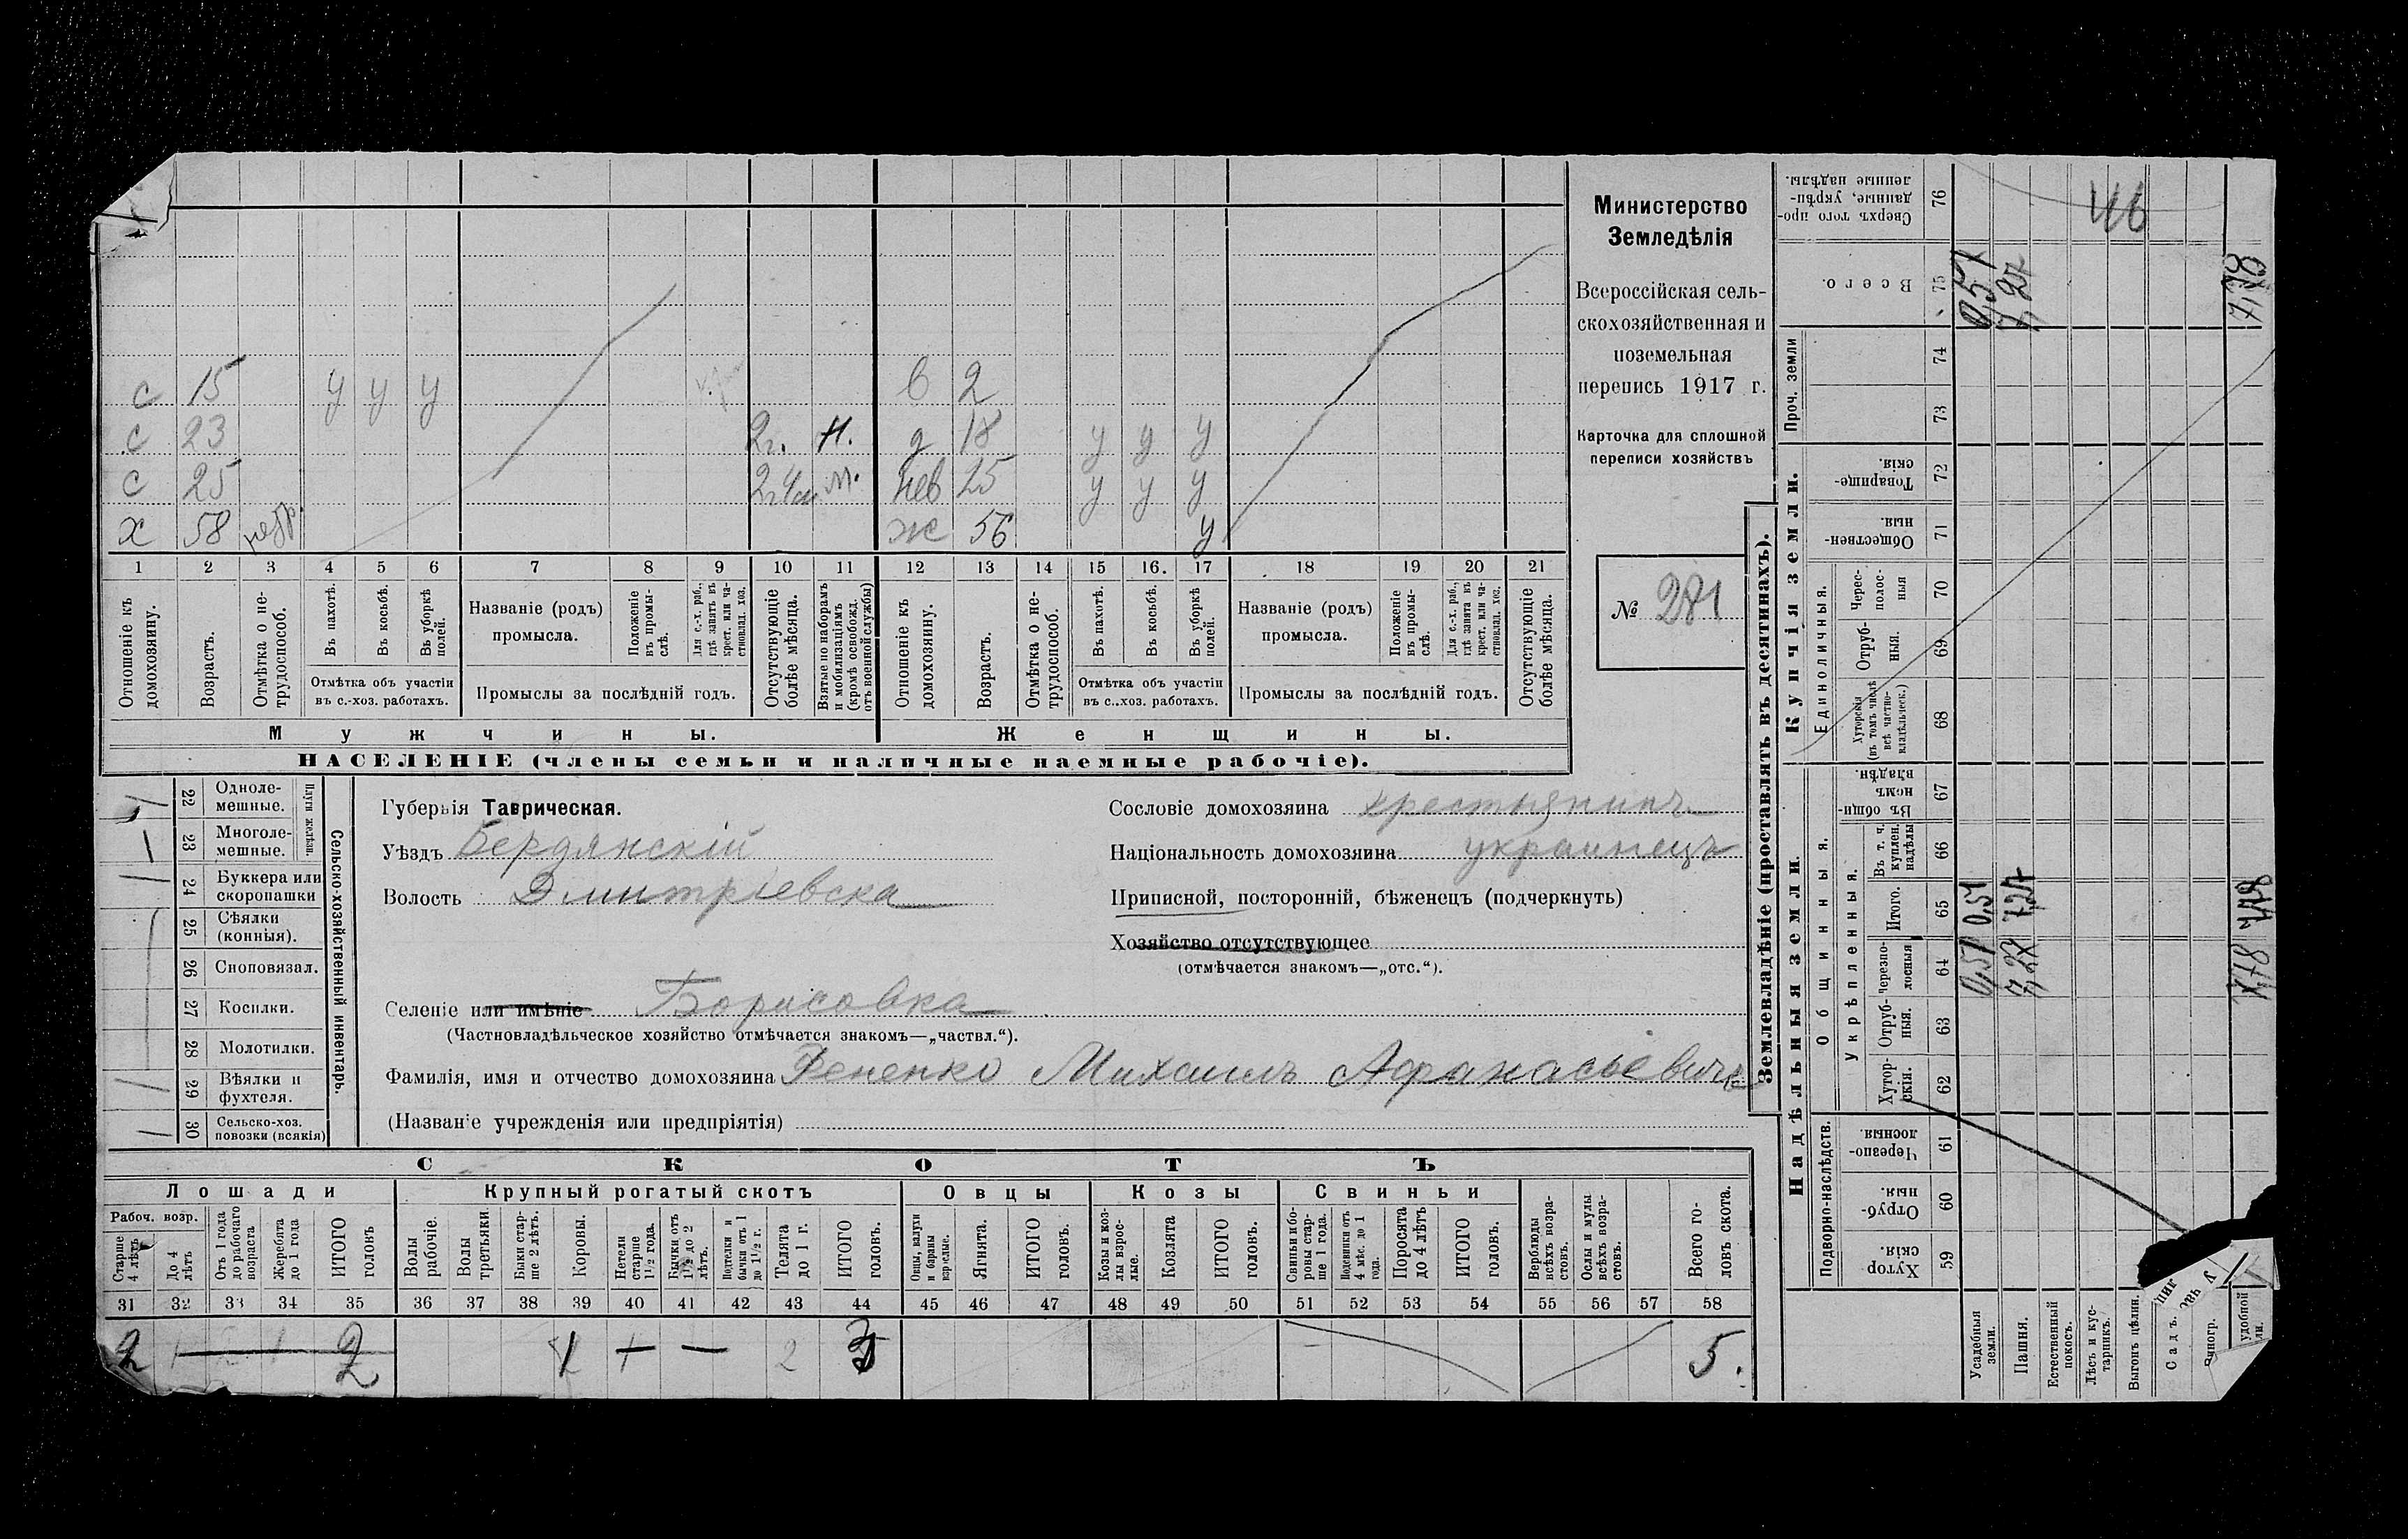 Министерство
Земледѣлія
Всероссійская сель-
скохозяйственная и
поземельная
перепись 1917 г.
Карточка для сплошной
переписи хозяйствъ
№ 281
с 15 у у у в 2
с 23 2г. н. д 18 у у у
с 25 м. нев 25 у у у
х 58 ж 56 у
1 2 3 4 5 6 7 8 9 10 11 12 13 14 15 16. 17 18 19 20 21
Отношеніе къ домохозяину.
Возрастъ.
Отмѣтка о не-трудоспособ.
Въ пахотѣ.
Въ косьбѣ.
Въ уборкѣ полей.
Отмѣтка объ участіи
въ с.-хоз. работахъ.
Названіе (родъ)
промысла.
Положеніе въ промы-слѣ.
Для с.-х. раб., гдѣ занятъ въ крест. или ча-стновлад. хоз.
Промыслы за послѣдній годъ.
Отсутствующіе болѣе мѣсяца.
Взятые по наборамъ и мобилизаціямъ (кромѣ освобожд. отъ военной службы)
Отношеніе къ домохозяину.
Возрастъ.
Отмѣтка о не-трудоспособ.
Въ пахотѣ.
Въ косьбѣ.
Въ уборкѣ полей.
Отмѣтка объ участіи
въ с..хоз. работахъ.
Названіе (родъ)
промысла.
Положеніе въ промы-слѣ.
Для с.-х. раб., гдѣ занята въ крест. или ча-стновлад. хоз.
Промыслы за послѣдній годъ.
Отсутствующіе болѣе мѣсяца.
Мужчины.
Женщины.
НАСЕЛЕНІЕ (члены семьи и наличные наемные рабочіе).
22 Одноле-мешные.
23 Многоле-мешные.
Плуги желѣзн.
24 Буккера или скоропашки
25 Сѣялки (конныя).
26 Сноповязал.
27 Косилки.
28 Молотилки.
29 Вѣялки и фухтеля.
30 Сельско-хоз. повозки (всякія)
Сельско-хозяйственный инвентарь.
Губернія Таврическая.
Уѣздъ Бердянскій
Волость Дмитріевска
Селеніе или имѣніе Борисовка
(Частновладѣльческое хозяйство отмѣчается знакомъ—„частвл.“).
Фамилія, имя и отчество домохозяина Фененко Михаилъ Афанасьевичъ
(Названіе учрежденія или предпріятія)
Сословіе домохозяина крестьянинъ
Національность домохозяина украинецъ
Приписной, посторонній, бѣженецъ (подчеркнуть)
Хозяйство отсутствующее
(отмѣчается знакомъ—„отс.“).
СКОТЪ
Лошади
Крупный рогатый скотъ
Овцы
Козы
Свиньи
Рабоч. возр.
Старше 4 лѣтъ
До 4 лѣтъ
Отъ 1 года до рабочаго возраста
Жеребята до 1 года
ИТОГО головъ
Волы рабочіе.
Волы третьяки.
Быки стар-ше 2 лѣтъ.
Коровы.
Нетели старше 1½ года.
Бычки отъ 1½ до 2 лѣтъ.
Подтелки и бычки отъ 1 до 1½ г.
Телята до 1 г.
ИТОГО головъ.
Овцы, валухи и бараны взрослые.
Ягнята.
ИТОГО головъ.
Козы и коз-лы взрос-лые.
Козлята
ИТОГО головъ.
Свиньи и бо-ровы стар-ше 1 года.
Подсвинки отъ 4 мѣс. до 1 года.
Поросята до 4 лѣтъ
ИТОГО головъ.
Верблюды всѣхъ возра-стовъ.
Ослы и мулы всѣхъ возра-стовъ.
Всего го-ловъ скота.
31 32 33 34 35 36 37 38 39 40 41 42 43 44 45 46 47 48 49 50 51 52 53 54 55 56 57 58
2 2 1 2 3 5.
Землевладѣніе (проставлять въ десятинахъ).
Надѣльныя земли.
Купчія земли.
Проч. земли
Подворно-наслѣдств.
Общинныя.
Укрѣпленныя.
Единоличныя.
Хутор-скія. 59
Отруб-ныя. 60
Черезпо-лосныя. 61
Хутор-скія. 62
Отруб-ныя. 63
Черезпо-лосныя 64
Итого. 65
Въ т. ч. куплен. надѣлы 66
Въ общин-номъ владѣн. 67
Хуторскія (въ томъ числѣ всѣ частно-владѣльческ.) 68
Отруб-ныя. 69
Черес-полос-ныя 70
Обществен-ныя. 71
Товарище-скія. 72
73
74
Всего. 75
Сверхъ того про-данные, укрѣп-ленные надѣлы. 76
Усадебныя земли. 0,51 0,51 0,51
Пашня. 7,27 7,27 7,27
Естественный покосъ.
Лѣсъ и кус-тарникъ.
Выгонъ цѣлин.
Садъ.
удобной
7,78 7,78 7,78
46